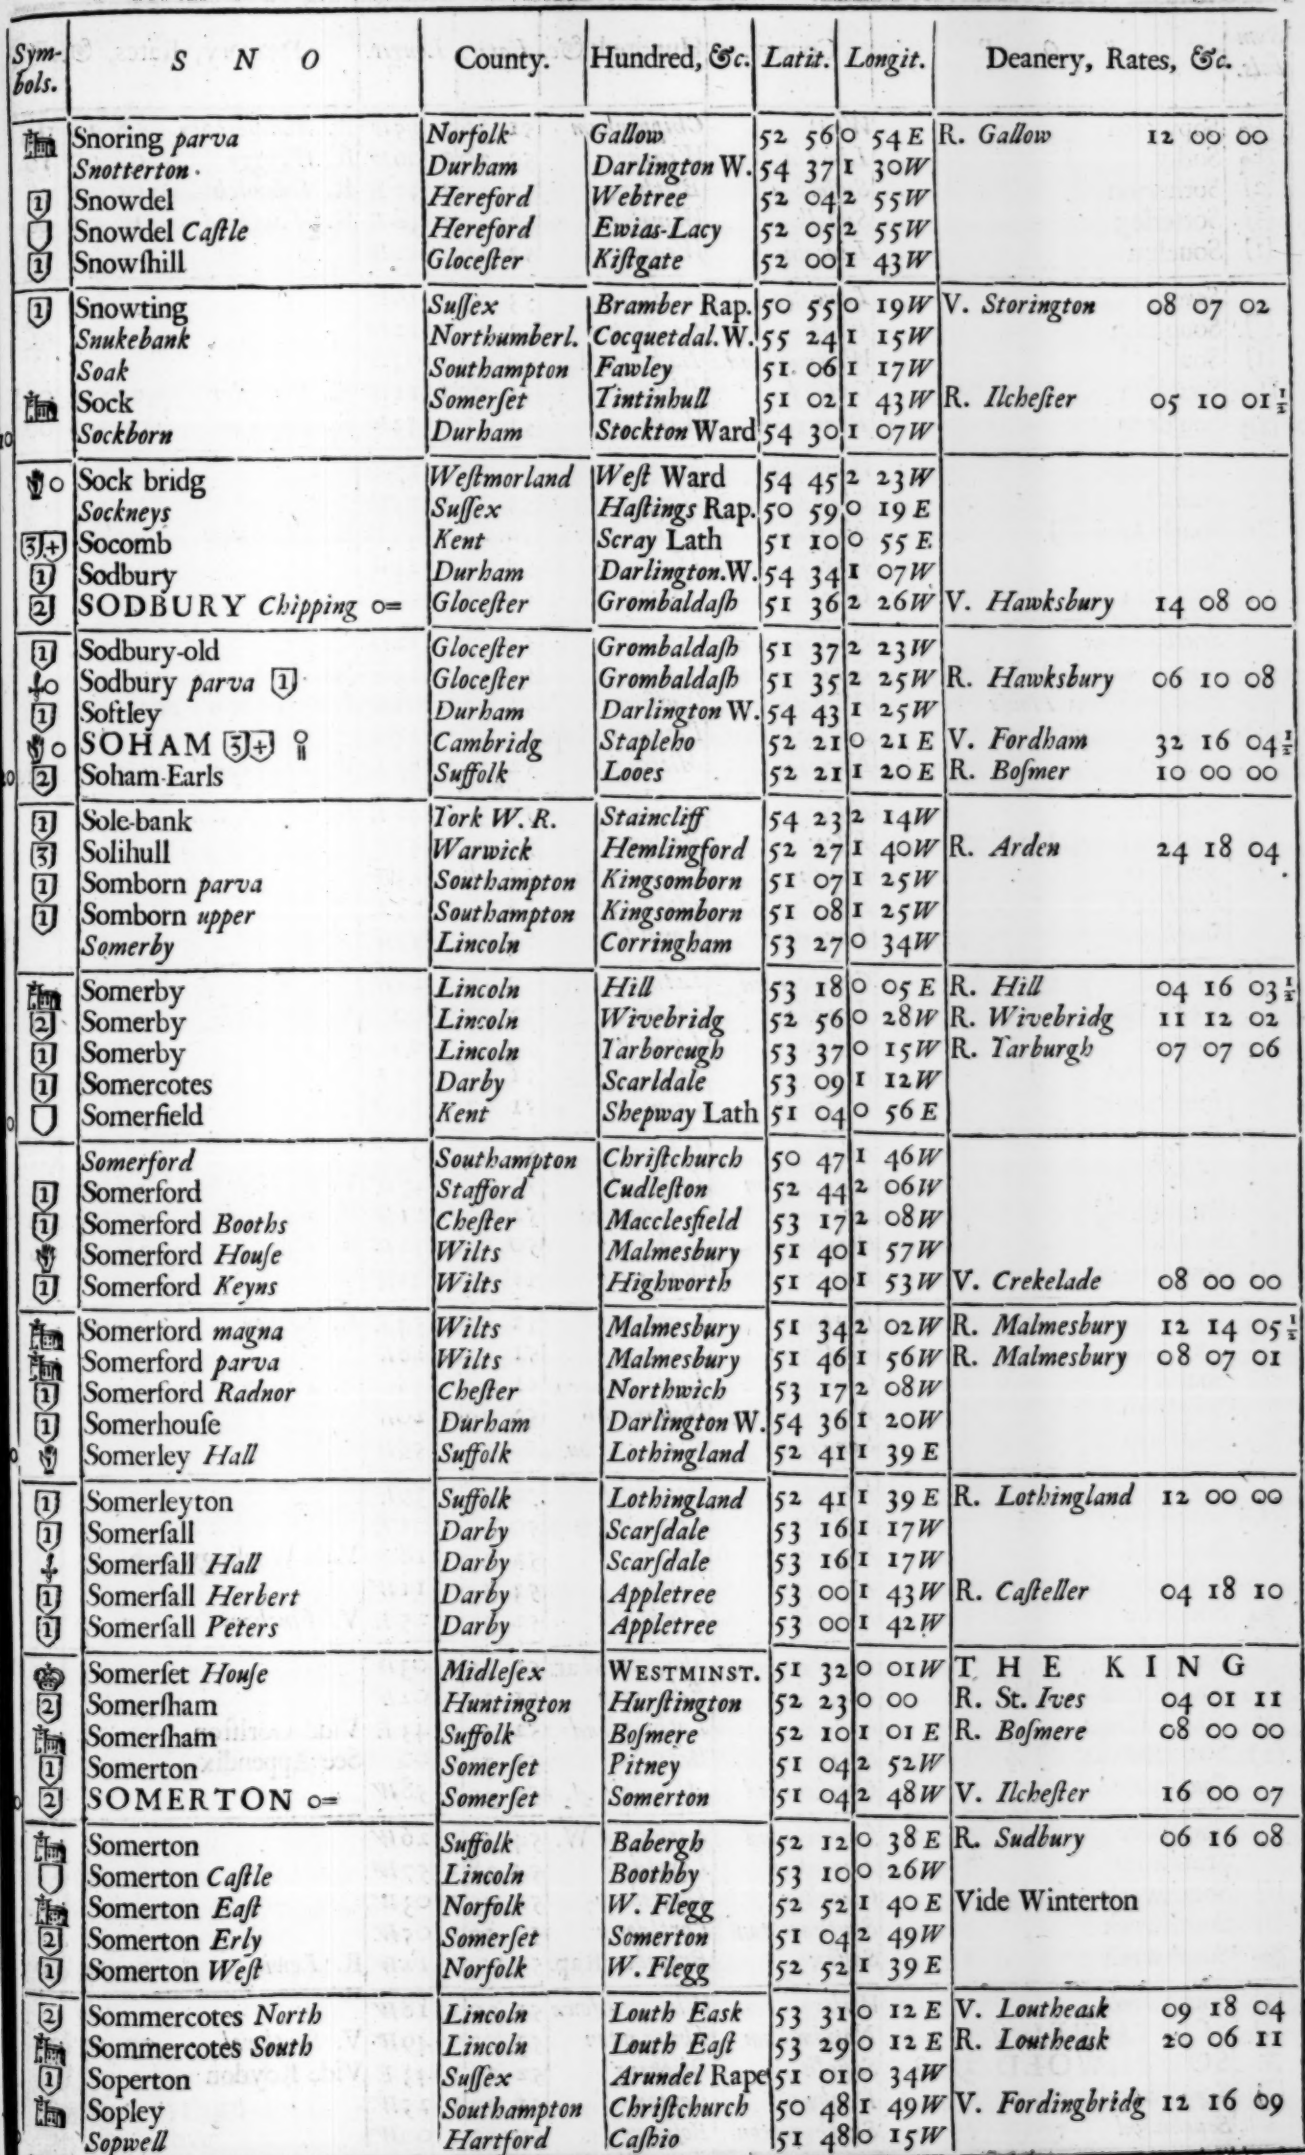 Symbols. S N O County. Hundred, &c. Latit. Longit. Deanery, Rates, &c.
Snoring parva Norfolk Gallow 52 56 0 54 E R. Gallow 12 00 00
Snotterton. Durham Darlington W. 54 37 1 30 W
1 Snowdel Hereford Webtree 52 04 2 55 W
Snowdel Caſtle Hereford Ewias-Lacy 52 05 2 55 W
1 Snowſhill Gloceſter Kiſtgate 52 00 1 43 W
1 Snowting Suſſex Bramber Rap. 50 55 0 19 W V. Storington 08 07 02
Snukebank Northumberl. Cocquetdal. W. 55 24 1 15 W
Soak Southampton Fawley 51 06 1 17 W
Sock Somerſet Tintinhull 51 02 1 43 W R. Ilcheſter 05 10 01½
Sockborn Durham Stockton Ward 54 30 1 07 W
Sock bridg Weſtmorland Weſt Ward 54 45 2 23 W
Sockneys Suſſex Haſtings Rap. 50 59 0 19 E
3 + Socomb Kent Scray Lath 51 10 0 55 E
1 Sodbury Durham Darlington. W. 54 34 1 07 W
2 SODBURY Chipping o= Gloceſter Grombaldaſh 51 36 2 26 W V. Hawksbury 14 08 00
1 Sodbury-old Gloceſter Grombaldaſh 51 37 2 23 W
Sodbury parva 1 Gloceſter Grombaldaſh 51 35 2 25 W R. Hawksbury 06 10 08
1 Softley Durham Darlington W. 54 43 1 25 W
SOHAM 3 + Cambridg Stapleho 52 21 0 21 E V. Fordham 32 16 04½
2 Soham-Earls Suffolk Looes 52 21 1 20 E R. Boſmer 10 00 00
1 Sole-bank York W. R. Staincliff 54 23 2 14 W
3 Solihull Warwick Hemlingford 52 27 1 40 W R. Arden 24 18 04
1 Somborn parva Southampton Kingsomborn 51 07 1 25 W
1 Somborn upper Southampton Kingsomborn 51 08 1 25 W
Somerby Lincoln Corringham 53 27 0 34 W
Somerby Lincoln Hill 53 18 0 05 E R. Hill 04 16 03½
2 Somerby Lincoln Wivebridg 52 56 0 28 W R. Wivebridg 11 12 02
1 Somerby Lincoln Yarborough 53 37 0 15 W R. Yarburgh 07 07 06
1 Somercotes Darby Scarldale 53 09 1 12 W
Somerfield Kent Shepway Lath 51 04 0 56 E
Somerford Southampton Chriſtchurch 50 47 1 46 W
1 Somerford Stafford Cudleſton 52 44 2 06 W
1 Somerford Booths Cheſter Macclesfield 53 17 2 08 W
Somerford Houſe Wilts Malmesbury 51 40 1 57 W
1 Somerford Keyns Wilts Highworth 51 40 1 53 W V. Crekelade 08 00 00
Somerford magna Wilts Malmesbury 51 34 2 02 W R. Malmesbury 12 14 05½
Somerford parva Wilts Malmesbury 51 46 1 56 W R. Malmesbury 08 07 01
1 Somerford Radnor Cheſter Northwich 53 17 2 08 W
1 Somerhouſe Durham Darlington W. 54 36 1 20 W
Somerley Hall Suffolk Lothingland 52 41 1 39 E
1 Somerleyton Suffolk Lothingland 52 41 1 39 E R. Lothingland 12 00 00
1 Somerſall Darby Scarſdale 53 16 1 17 W
Somerſall Hall Darby Scarſdale 53 16 1 17 W
1 Somerſall Herbert Darby Appletree 53 00 1 43 W R. Caſteller 04 18 10
1 Somerſall Peters Darby Appletree 53 00 1 42 W
Somerſet Houſe Midleſex WESTMINST. 51 32 0 01 W THE KING
2 Somerſham Huntington Hurſtington 52 23 0 00 R. St. Ives 04 01 11
Somerſham Suffolk Boſmere 52 10 1 01 E R. Boſmere 08 00 00
1 Somerton Somerſet Pitney 51 04 2 52 W
2 SOMERTON o= Somerſet Somerton 51 04 2 48 W V. Ilcheſter 16 00 07
Somerton Suffolk Babergh 52 12 0 38 E R. Sudbury 06 16 08
Somerton Caſtle Lincoln Boothby 53 10 0 26 W
Somerton Eaſt Norfolk W. Flegg 52 52 1 40 E Vide Winterton
2 Somerton Erly Somerſet Somerton 51 04 2 49 W
1 Somerton Weſt Norfolk W. Flegg 52 52 1 39 E
2 Sommercotes North Lincoln Louth Eask 53 31 0 12 E V. Loutheask 09 18 04
Sommercotes South Lincoln Louth Eaſt 53 29 0 12 E R. Loutheask 20 06 11
1 Soperton Suſſex Arundel Rape 51 01 0 34 W
Sopley Southampton Chriſtchurch 50 48 1 49 W V. Fordingbridg 12 16 09
Sopwell Hartford Caſhio 51 48 0 15 W